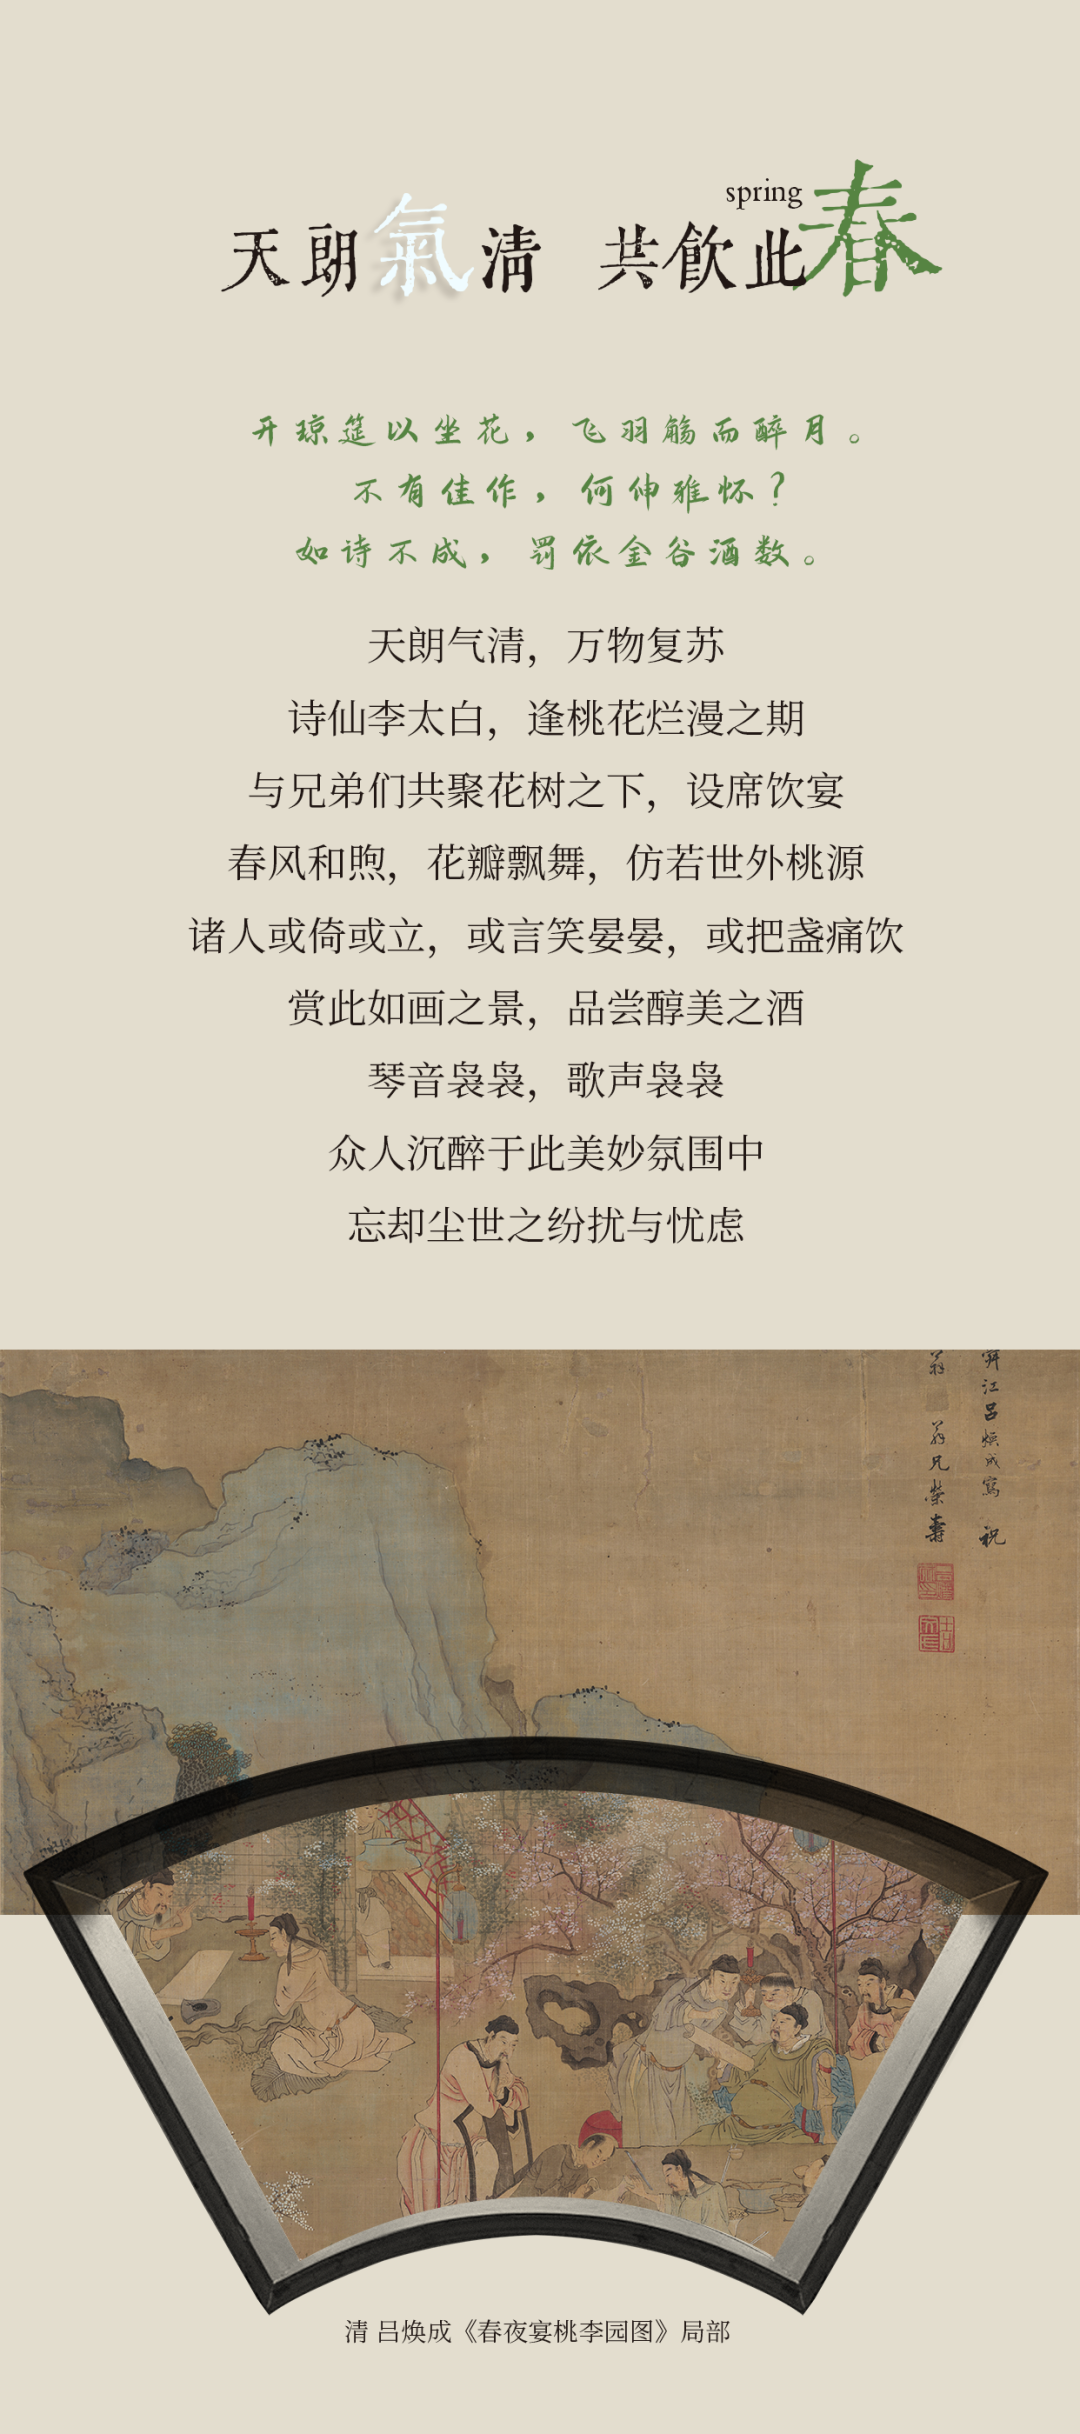 spring
天朗氣清 共飲此春
开琼筵以坐花，飞羽觞而醉月。
不有佳作，何伸雅怀？
如诗不成，罚依金谷酒数。
天朗气清，万物复苏
诗仙李太白，逢桃花烂漫之期
与兄弟们共聚花树之下，设席饮宴
春风和煦，花瓣飘舞，仿若世外桃源
诸人或倚或立，或言笑晏晏，或把盏痛饮
赏此如画之景，品尝醇美之酒
琴音袅袅，歌声袅袅
众人沉醉于此美妙氛围中
忘却尘世之纷扰与忧虑
江吕焕成寫 祝
翁兄榮壽
清 吕焕成《春夜宴桃李园图》局部